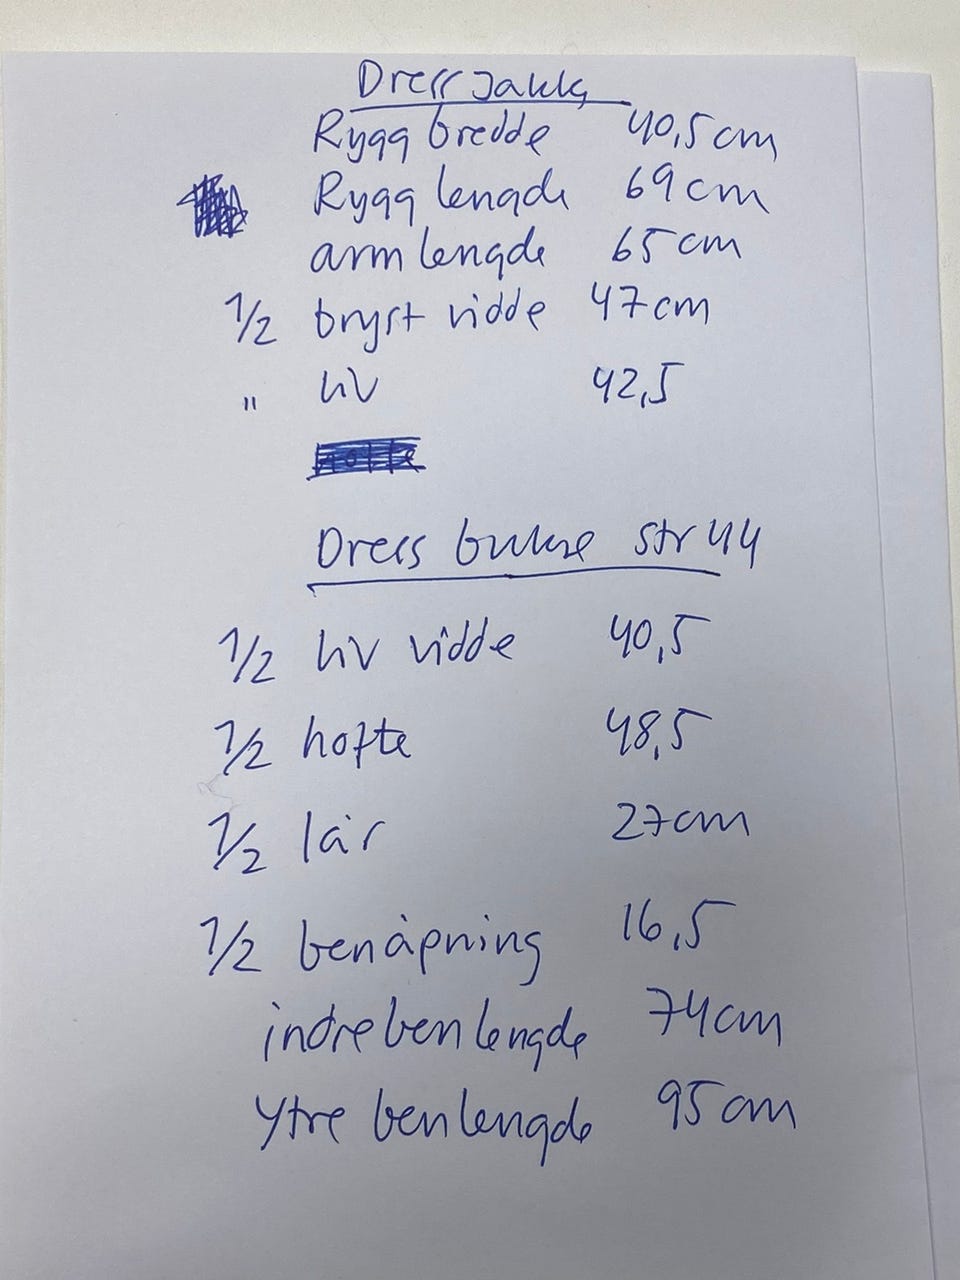 Dress Jakke
Rygg bredde 40,5 cm
Rygg lengde 69 cm
arm lengde 65 cm
1/2 bryst vidde 47 cm
" liv 42,5
Dress bukse str 44
1/2 liv vidde 40,5
1/2 hofte 48,5
1/2 lår 27 cm
1/2 benåpning 16,5
indre ben lengde 74 cm
Ytre ben lengde 95 cm